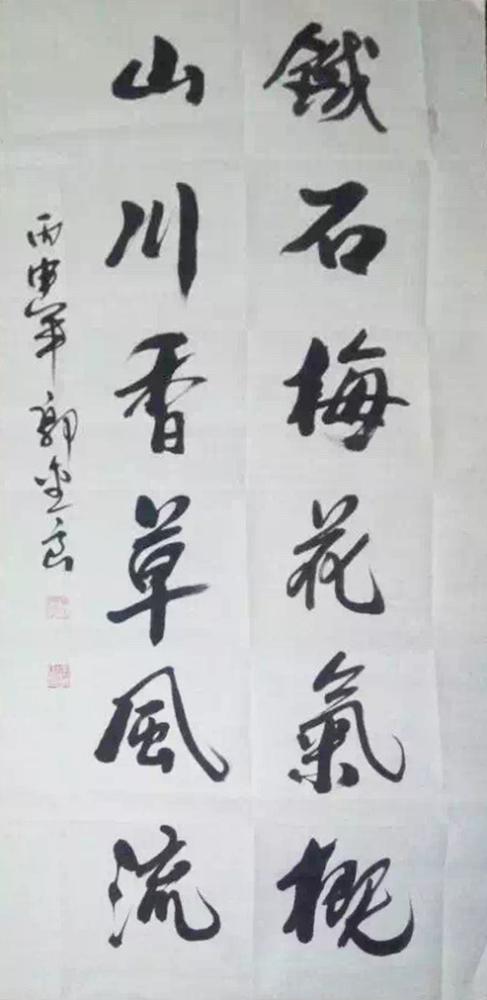 鐵石梅花氣概
山川香草風流
丙申年 郭金良